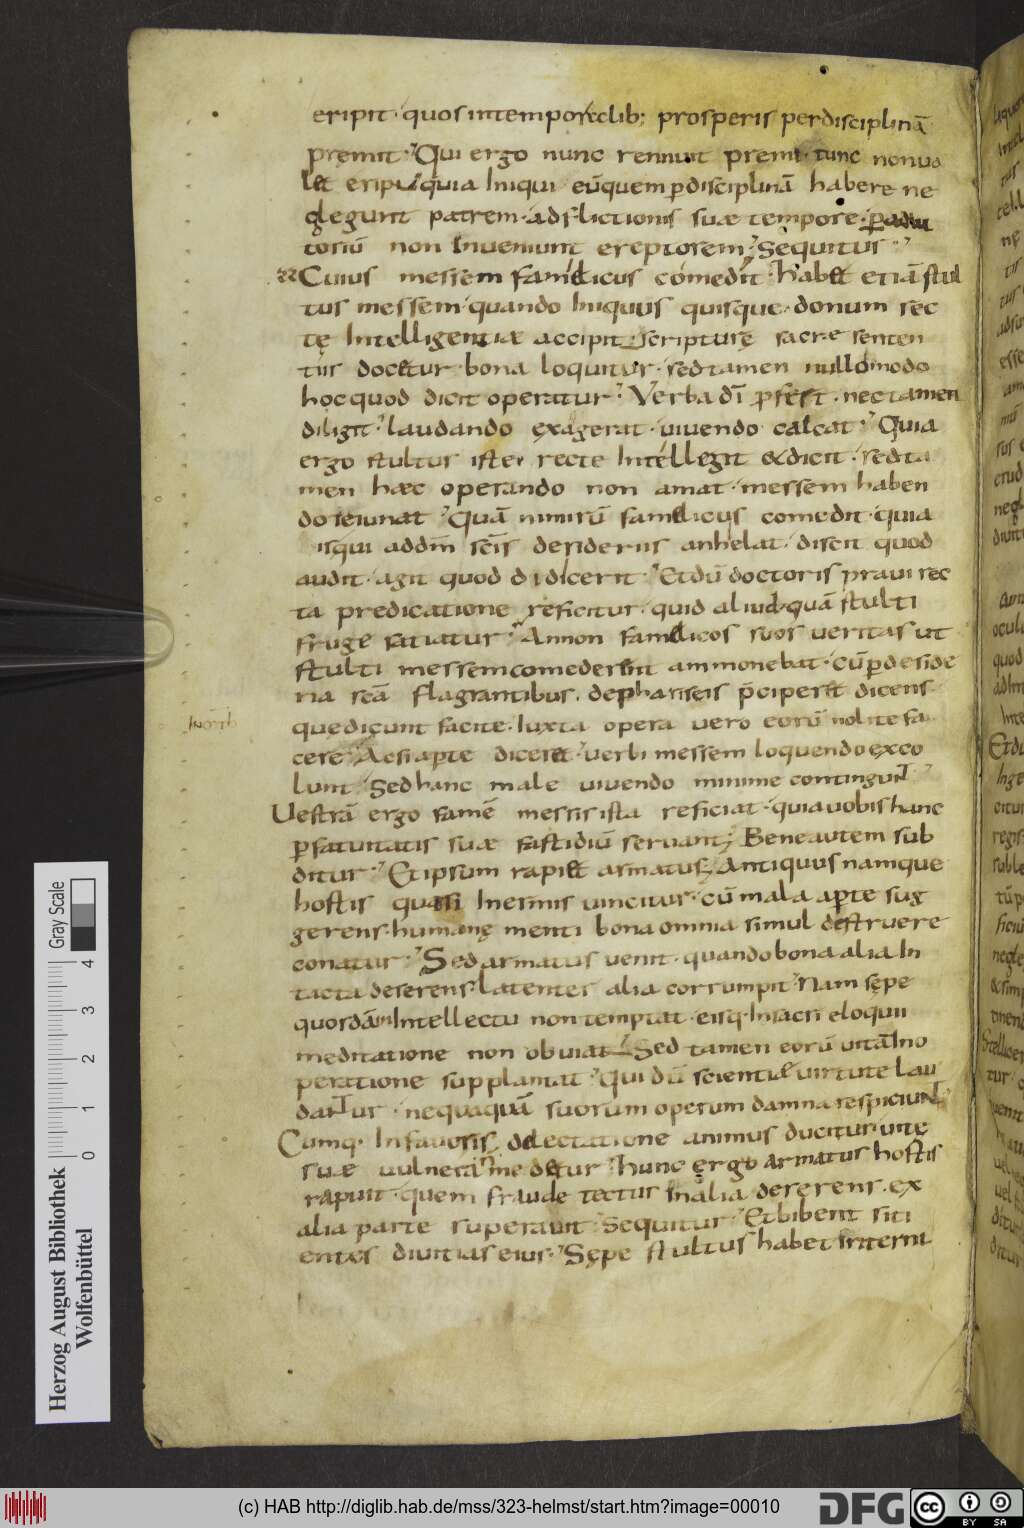 eripit · quos in tempore reclib; prosperis per disciplinā
premit · Qui ergo nunc rennuit premi · tunc non ua
let eripi · quia iniqui eūquem p disciplinā habere ne
glegunt patrem · adflictionis suæ tempore · p adiu
toriū non inueniunt ereptorem; Sequitur ·
Cuius messem famelicus comedit · habet etiā stul
tus messem · quando iniquus quisque · donum rec
tę intelligentiæ accipit · scripturę sacræ senten
tiis docetur · bona loquitur · sed tamen nullo modo
hoc quod dicit operatur · Verba dī p̄fert · nec tamen
diligit · laudando exagerat · uiuendo calcat · Quia
ergo stultus iste recte intellegit & dicit · sed ta
men hæc operando non amat · messem haben
do ieiunat · Quā nimirū famelicus comedit · quia
isqui ad dm̄ sc̄is desideriis anhelat · discit quod
audit · agit quod didicerit · Et dū doctoris praui rec
ta predicatione reficitur · quid aliud quā stulti
fruge satiatur · An non famelicos suos ueritas ut
stulti messem comederent ammonebat · cū p deside
ria sc̄a flagrantibus · de phariseis p̄ciperet dicens
que dicunt facite · Iuxta opera uero eorū nolite fa
cere · Ac si apte diceret · uerbi messem loquendo exco
lunt · Sed hanc male uiuendo minime contingunt ·
Uestrā ergo famē messis ista reficiat · quia uobis hanc
p fatuitatis suæ fastidiū seruant; Bene autem sub
ditur · Et ipsum rapiet armatus; Antiquus namque
hostis quasi inermis uincitur · cū mala apte sug
gerens · humanę menti bona omnia simul destruere
conatur · Sed armatus uenit · quando bona alia in
tacta deserens · latenter alia corrumpit · Nam sępe
quosdā in intellectu non temptat · eisq· in sacri eloquii
meditatione non obuiat · Sed tamen eorū uitā in o
peratione supplantat · Qui dū scientiæ uirtute lau
dantur · nequaquā suorum operum damna respiciunt
Cumq· in fauoris delectatione animus ducitur · uitę
suæ uulneri n̄ medetur · hunc ergo armatus hostis
rapuit · quem fraude tectus in alia dererens · ex
alia parte superauit · Sequitur · Et bibent siti
entes diuitias eius · Sępe stultus habet interni
Herzog August Bibliothek
Wolfenbüttel
0 1 2 3 4
Gray Scale
(c) HAB http://diglib.hab.de/mss/323-helmst/start.htm?image=00010
DFG
cc BY SA